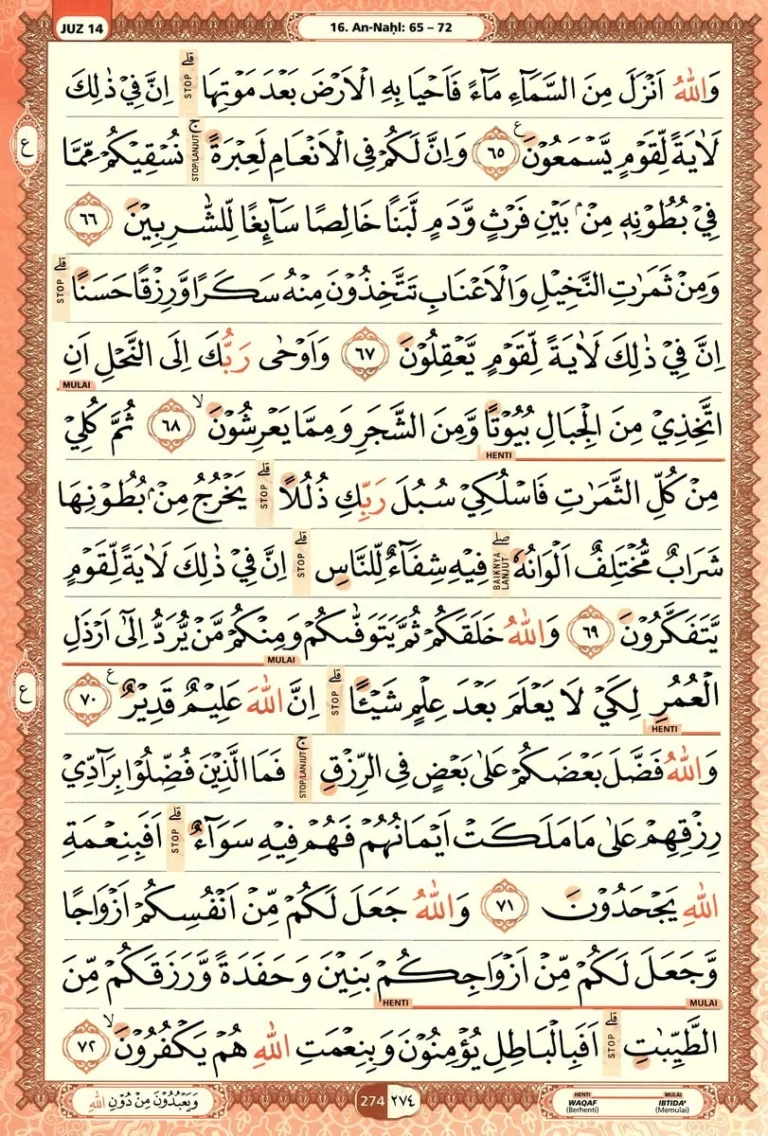 JUZ 14
16. An-Naḥl: 65 – 72
وَاللّٰهُ اَنْزَلَ مِنَ السَّمَاۤءِ مَاۤءً فَاَحْيَا بِهِ الْاَرْضَ بَعْدَ مَوْتِهَا ۗ STOP اِنَّ فِيْ ذٰلِكَ
ع لَاٰيَةً لِّقَوْمٍ يَّسْمَعُوْنَ ع ٦٥ وَاِنَّ لَكُمْ فِى الْاَنْعَامِ لَعِبْرَةً ۚ STOP/LANJUT نُسْقِيْكُمْ مِّمَّا
فِيْ بُطُوْنِهٖ مِنْۢ بَيْنِ فَرْثٍ وَّدَمٍ لَّبَنًا خَالِصًا سَاۤىِٕغًا لِّلشّٰرِبِيْنَ ٦٦
وَمِنْ ثَمَرٰتِ النَّخِيْلِ وَالْاَعْنَابِ تَتَّخِذُوْنَ مِنْهُ سَكَرًا وَّرِزْقًا حَسَنًا ۗ STOP
اِنَّ فِيْ ذٰلِكَ لَاٰيَةً لِّقَوْمٍ يَّعْقِلُوْنَ ٦٧ وَاَوْحٰى رَبُّكَ اِلَى النَّحْلِ اَنِ
MULAI
اتَّخِذِيْ مِنَ الْجِبَالِ بُيُوْتًا وَّمِنَ الشَّجَرِ وَمِمَّا يَعْرِشُوْنَ ۙ ٦٨ ثُمَّ كُلِيْ
HENTI
مِنْ كُلِّ الثَّمَرٰتِ فَاسْلُكِيْ سُبُلَ رَبِّكِ ذُلُلًا ۗ STOP يَخْرُجُ مِنْۢ بُطُوْنِهَا
شَرَابٌ مُّخْتَلِفٌ اَلْوَانُهٗ ۖ BAIKNYA LANJUT فِيْهِ شِفَاۤءٌ لِّلنَّاسِ ۗ STOP اِنَّ فِيْ ذٰلِكَ لَاٰيَةً لِّقَوْمٍ
يَّتَفَكَّرُوْنَ ٦٩ وَاللّٰهُ خَلَقَكُمْ ثُمَّ يَتَوَفّٰىكُمْ وَمِنْكُمْ مَّنْ يُّرَدُّ اِلٰٓى اَرْذَلِ
MULAI
ع الْعُمُرِ لِكَيْ لَا يَعْلَمَ بَعْدَ عِلْمٍ شَيْـًٔا ۗ STOP اِنَّ اللّٰهَ عَلِيْمٌ قَدِيْرٌ ع ٧٠
HENTI
وَاللّٰهُ فَضَّلَ بَعْضَكُمْ عَلٰى بَعْضٍ فِى الرِّزْقِ ۚ STOP/LANJUT فَمَا الَّذِيْنَ فُضِّلُوْا بِرَاۤدِّيْ
رِزْقِهِمْ عَلٰى مَا مَلَكَتْ اَيْمَانُهُمْ فَهُمْ فِيْهِ سَوَاۤءٌ ۗ STOP اَفَبِنِعْمَةِ
اللّٰهِ يَجْحَدُوْنَ ٧١ وَاللّٰهُ جَعَلَ لَكُمْ مِّنْ اَنْفُسِكُمْ اَزْوَاجًا
وَّجَعَلَ لَكُمْ مِّنْ اَزْوَاجِكُمْ بَنِيْنَ وَحَفَدَةً وَّرَزَقَكُمْ مِّنَ
MULAI HENTI
الطَّيِّبٰتِ ۗ STOP اَفَبِالْبَاطِلِ يُؤْمِنُوْنَ وَبِنِعْمَتِ اللّٰهِ هُمْ يَكْفُرُوْنَ ۙ ٧٢
وَيَعْبُدُوْنَ مِنْ دُوْنِ اللّٰهِ
274 ٢٧٤
HENTI MULAI
WAQAF IBTIDA'
(Berhenti) (Memulai)